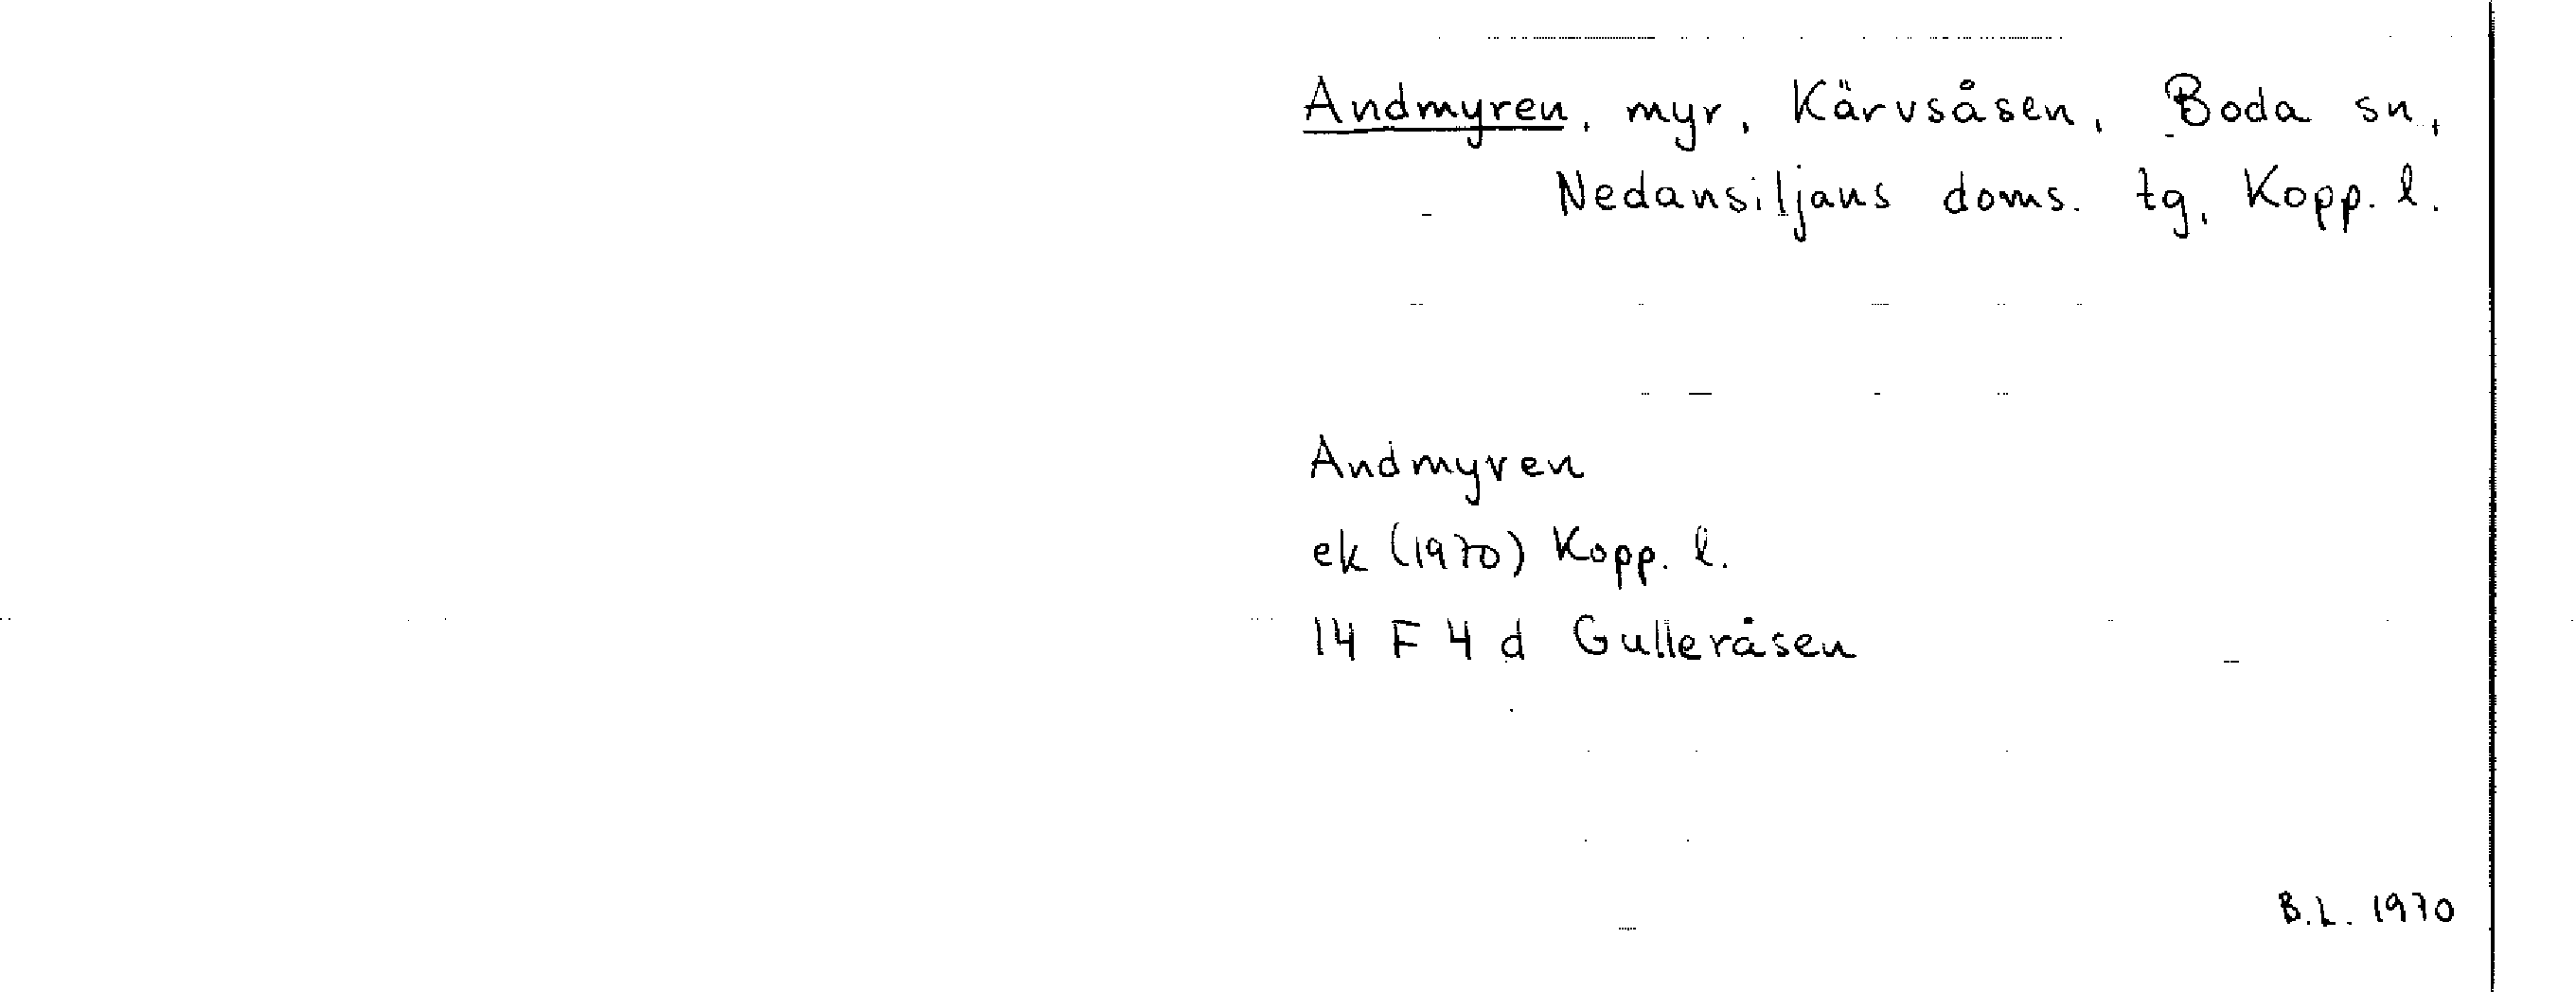 Andmyren, myr, Kärvsåsen, Boda sn,
Nedansiljans doms. tg, Kopp. l.
Andmyren
ek (1970) Kopp. l.
14 F 4 d Gulleråsen
B.L. 1970